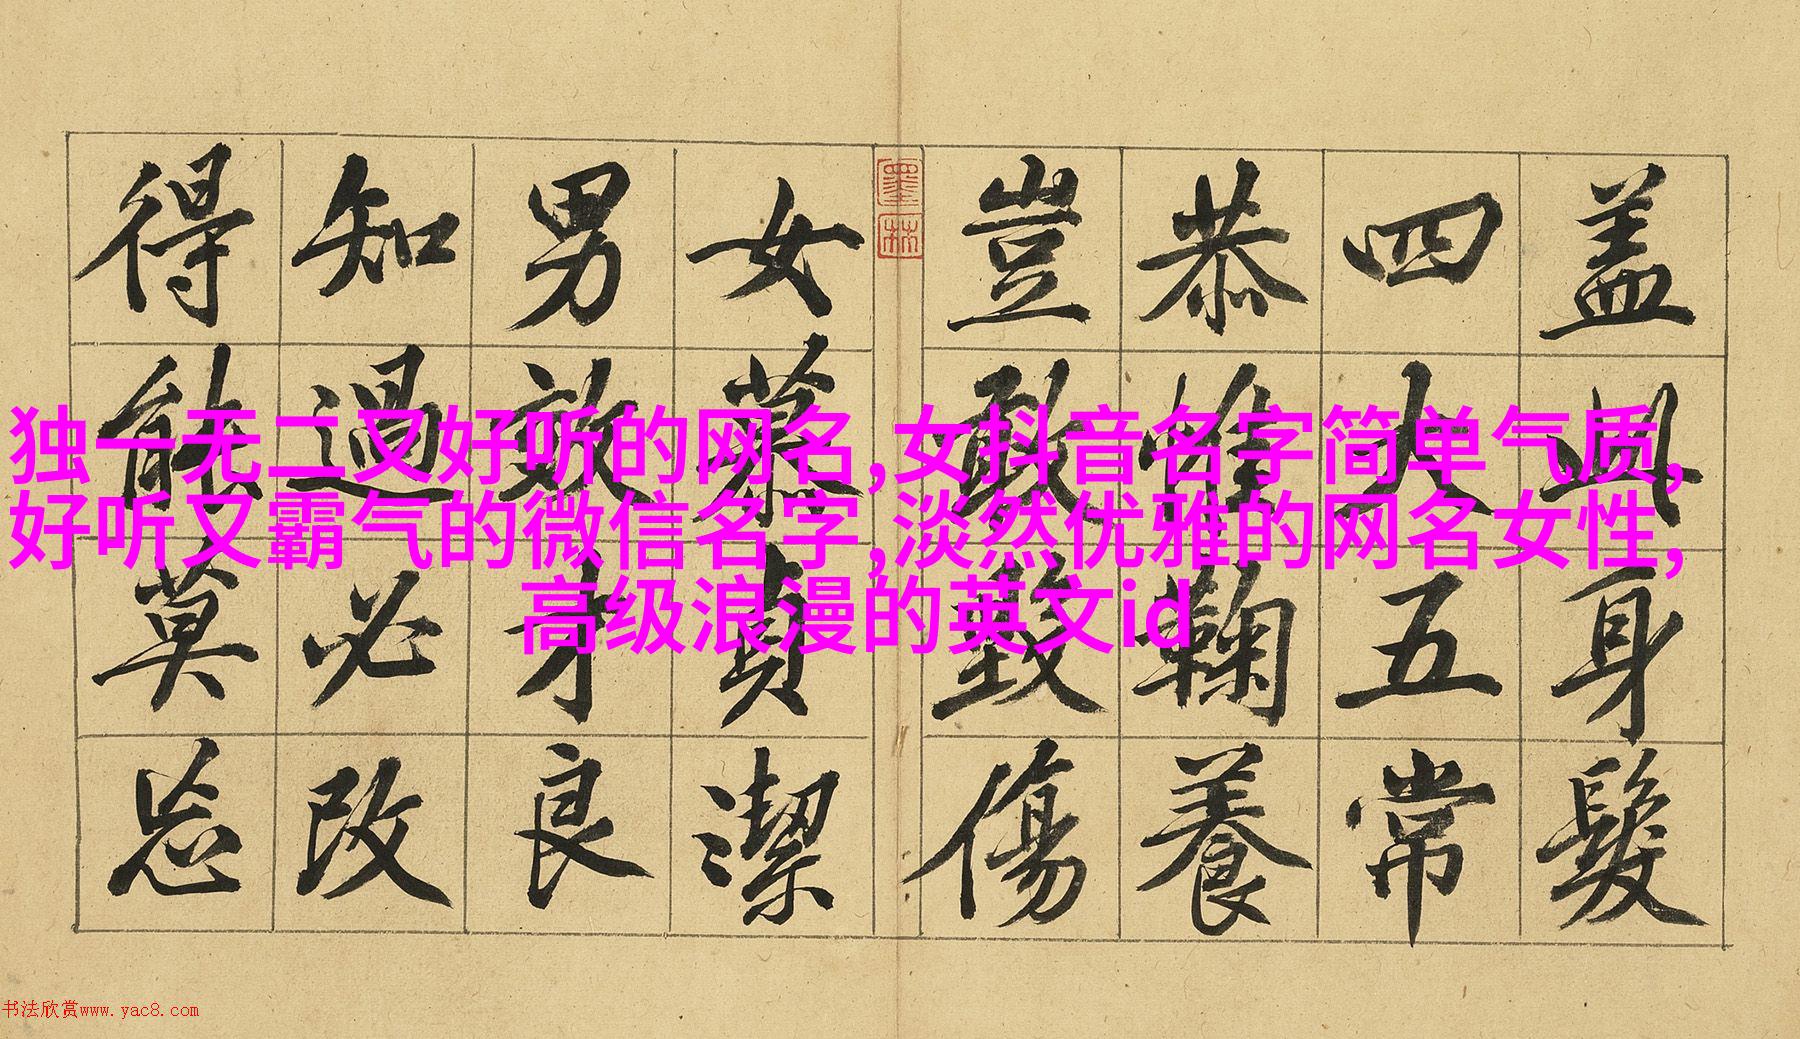 盖此身髮
四大五常
恭惟鞠養
豈敢毀傷
墨林
女慕貞潔
男效才良
知過必改
得能莫忘
独一无二又好听的网名,女抖音名字简单气质,
好听又霸气的微信名字,淡然优雅的网名女性,
高级浪漫的英文id
书法欣赏www.yac8.com